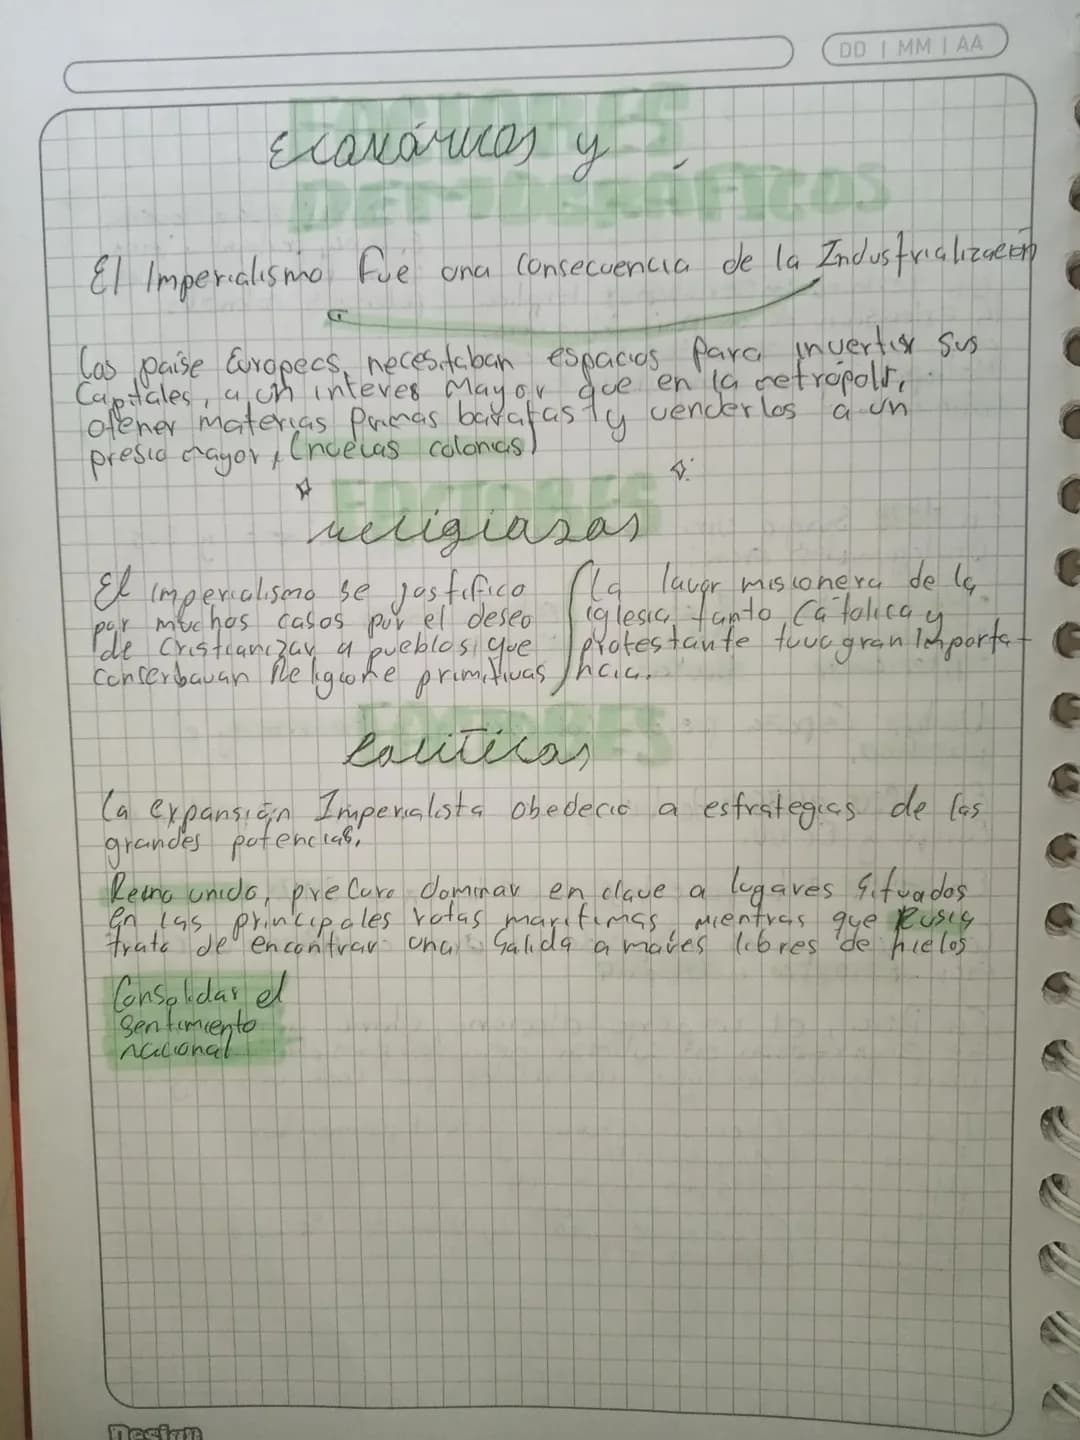 DD | MM | AA
FACTORES
Económicos y
DEMOGRÁFICOS
El Imperialismo fue una consecuencia de la Industrialización
Los paise Europecs, necesitaban espacios para invertir sus
Capitales, a un interes Mayor que en la metropoli,
otener materias Primas baratas y venderlos a un
presio mayor, (nuevas colonias)
FACTORES
religiosos
El imperialismo se jostifico
por muchos casos por el deseo
de Cristianizar a pueblos que
conserbavan Religione primitivas
(La lavor misionera de la
iglesia, tanto Catolica y
protestante tuvo gran Importa-
ncia.
FACTORES
Políticos
La expansión Imperialista obedecio a estrategias de las
grandes potencias.
Reino unido, precuro dominar en clave a lugares Situados
en las principales rotas maritimas mientras que Rusia
trato de encontrar una Salida a mares libres de hielos
Consolidar el
Sentimiento
nacional
Design